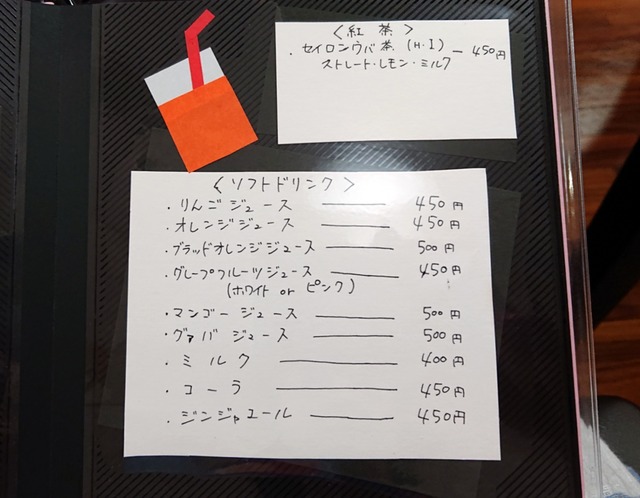 〈 紅 茶 〉
・セイロンウバ茶 (H・I) ― 450円
ストレート・レモン・ミルク
〈 ソフトドリンク 〉
・りんごジュース ――― 450円
・オレンジジュース ――― 450円
・ブラッドオレンジジュース ――― 500円
・グレープフルーツジュース ――― 450円
(ホワイト or ピンク)
・マンゴージュース ――― 500円
・グァバジュース ――― 500円
・ミルク ――― 400円
・コーラ ――― 450円
・ジンジャエール ――― 450円